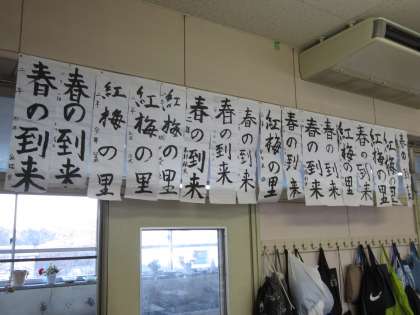 春の到来
春の到来
紅梅の里
紅梅の里
紅梅の里
春の到来
春の到来
春の到来
紅梅の里
春の到来
春の到来
春の到来
紅梅の里
春の到来
紅梅の里
紅梅の里
春の到来